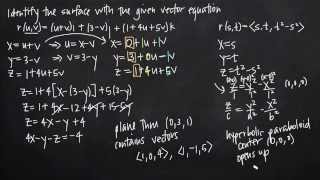 Identify the surface with the given vector equation
r(u,v)=(u+v)i+(3-v)j+(1+4u+5v)k
x=u+v → u=x-v
y=3-v → v=3-y
z=1+4u+5v
z=1+4[x-(3-y)]+5(3-y)
z=1+4x-12+4y+15-5y
z=4x-y+4
4x-y-z=-4
x=0+1u+1v
y=3+0u-1v
z=1+4u+5v
plane thru (0,3,1)
contains vectors
⟨1,0,4⟩, ⟨1,-1,5⟩
r(s,t)=⟨s,t,t²-s²⟩
x=s
y=t
z=t²-s²
(0,0,0)
z/c = y²/a² - x²/b²
hyperbolic paraboloid
center (0,0,0)
opens up